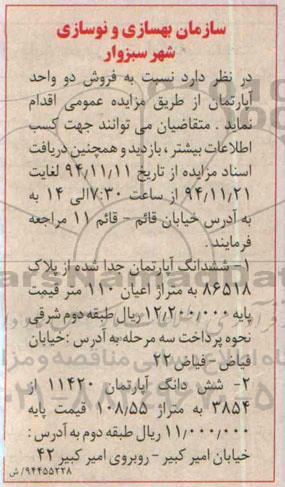 سازمان بهسازی و نوسازی
شهر سبزوار
در نظر دارد نسبت به فروش دو واحد
آپارتمان از طریق مزایده عمومی اقدام
نماید . متقاضیان می توانند جهت کسب
اطلاعات بیشتر ، بازدید و همچنین دریافت
اسناد مزایده از تاریخ ۹۴/۱۱/۱۱ لغایت
۹۴/۱۱/۲۱ از ساعت ۷:۳۰ الی ۱۴ به
به آدرس خیابان قائم - قائم ۱۱ مراجعه
فرمایند .
۱- ششدانگ آپارتمان جدا شده از پلاک
۸۶۵۱۸ به متراژ اعیان ۱۱۰ متر قیمت
پایه ۱۲/۲۰۰/۰۰۰ ریال طبقه دوم شرقی
نحوه پرداخت سه مرحله به آدرس :خیابان
فیاض - فیاض ۲۲
۲- شش دانگ آپارتمان ۱۱۴۲۰ از
۳۸۵۴ به متراژ ۱۰۸/۵۵ قیمت پایه
۱۱/۰۰۰/۰۰۰ ریال طبقه دوم به آدرس :
خیابان امیر کبیر - روبروی امیر کبیر ۴۲
۹۴۴۵۵۲۳۸/ ش